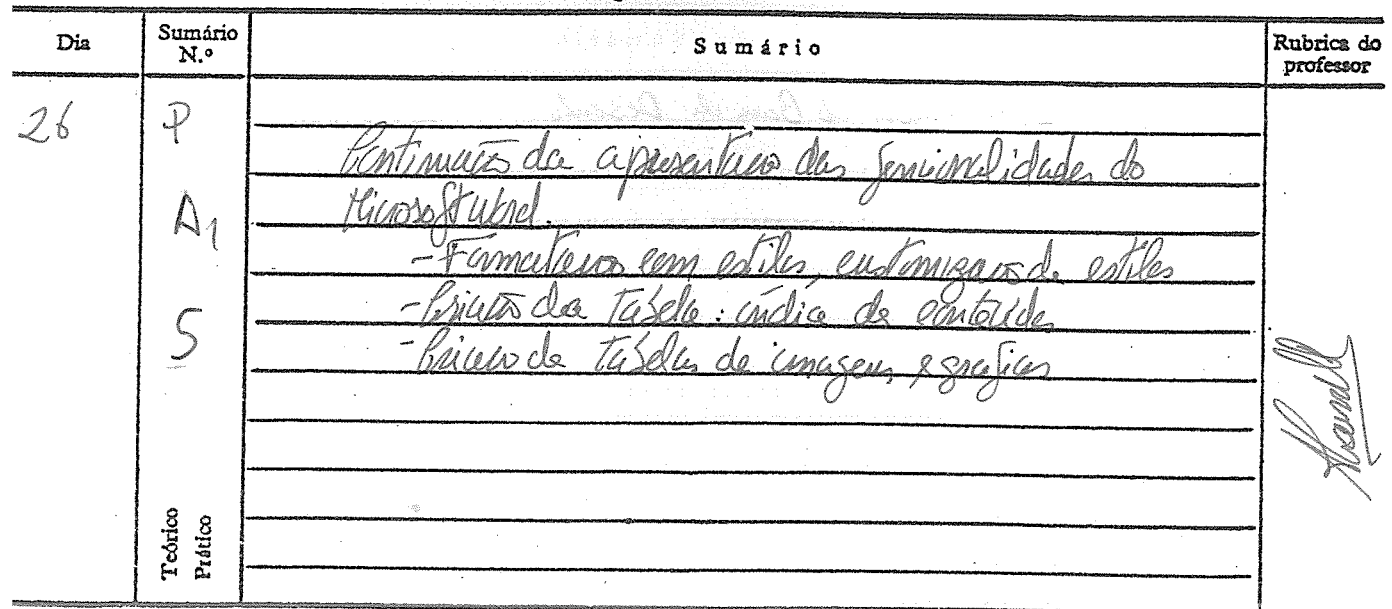 Dia Sumário N.º Sumário Rubrica do professor
26 P
Continuação da apresentação das funcionalidades do
A1 Microsoft Word.
- Formatação com estilos, customização de estilos
- Criação da Tabela: índice de conteúdo
S - Criação de Tabelas de imagens e graficos
Teórico
Prático